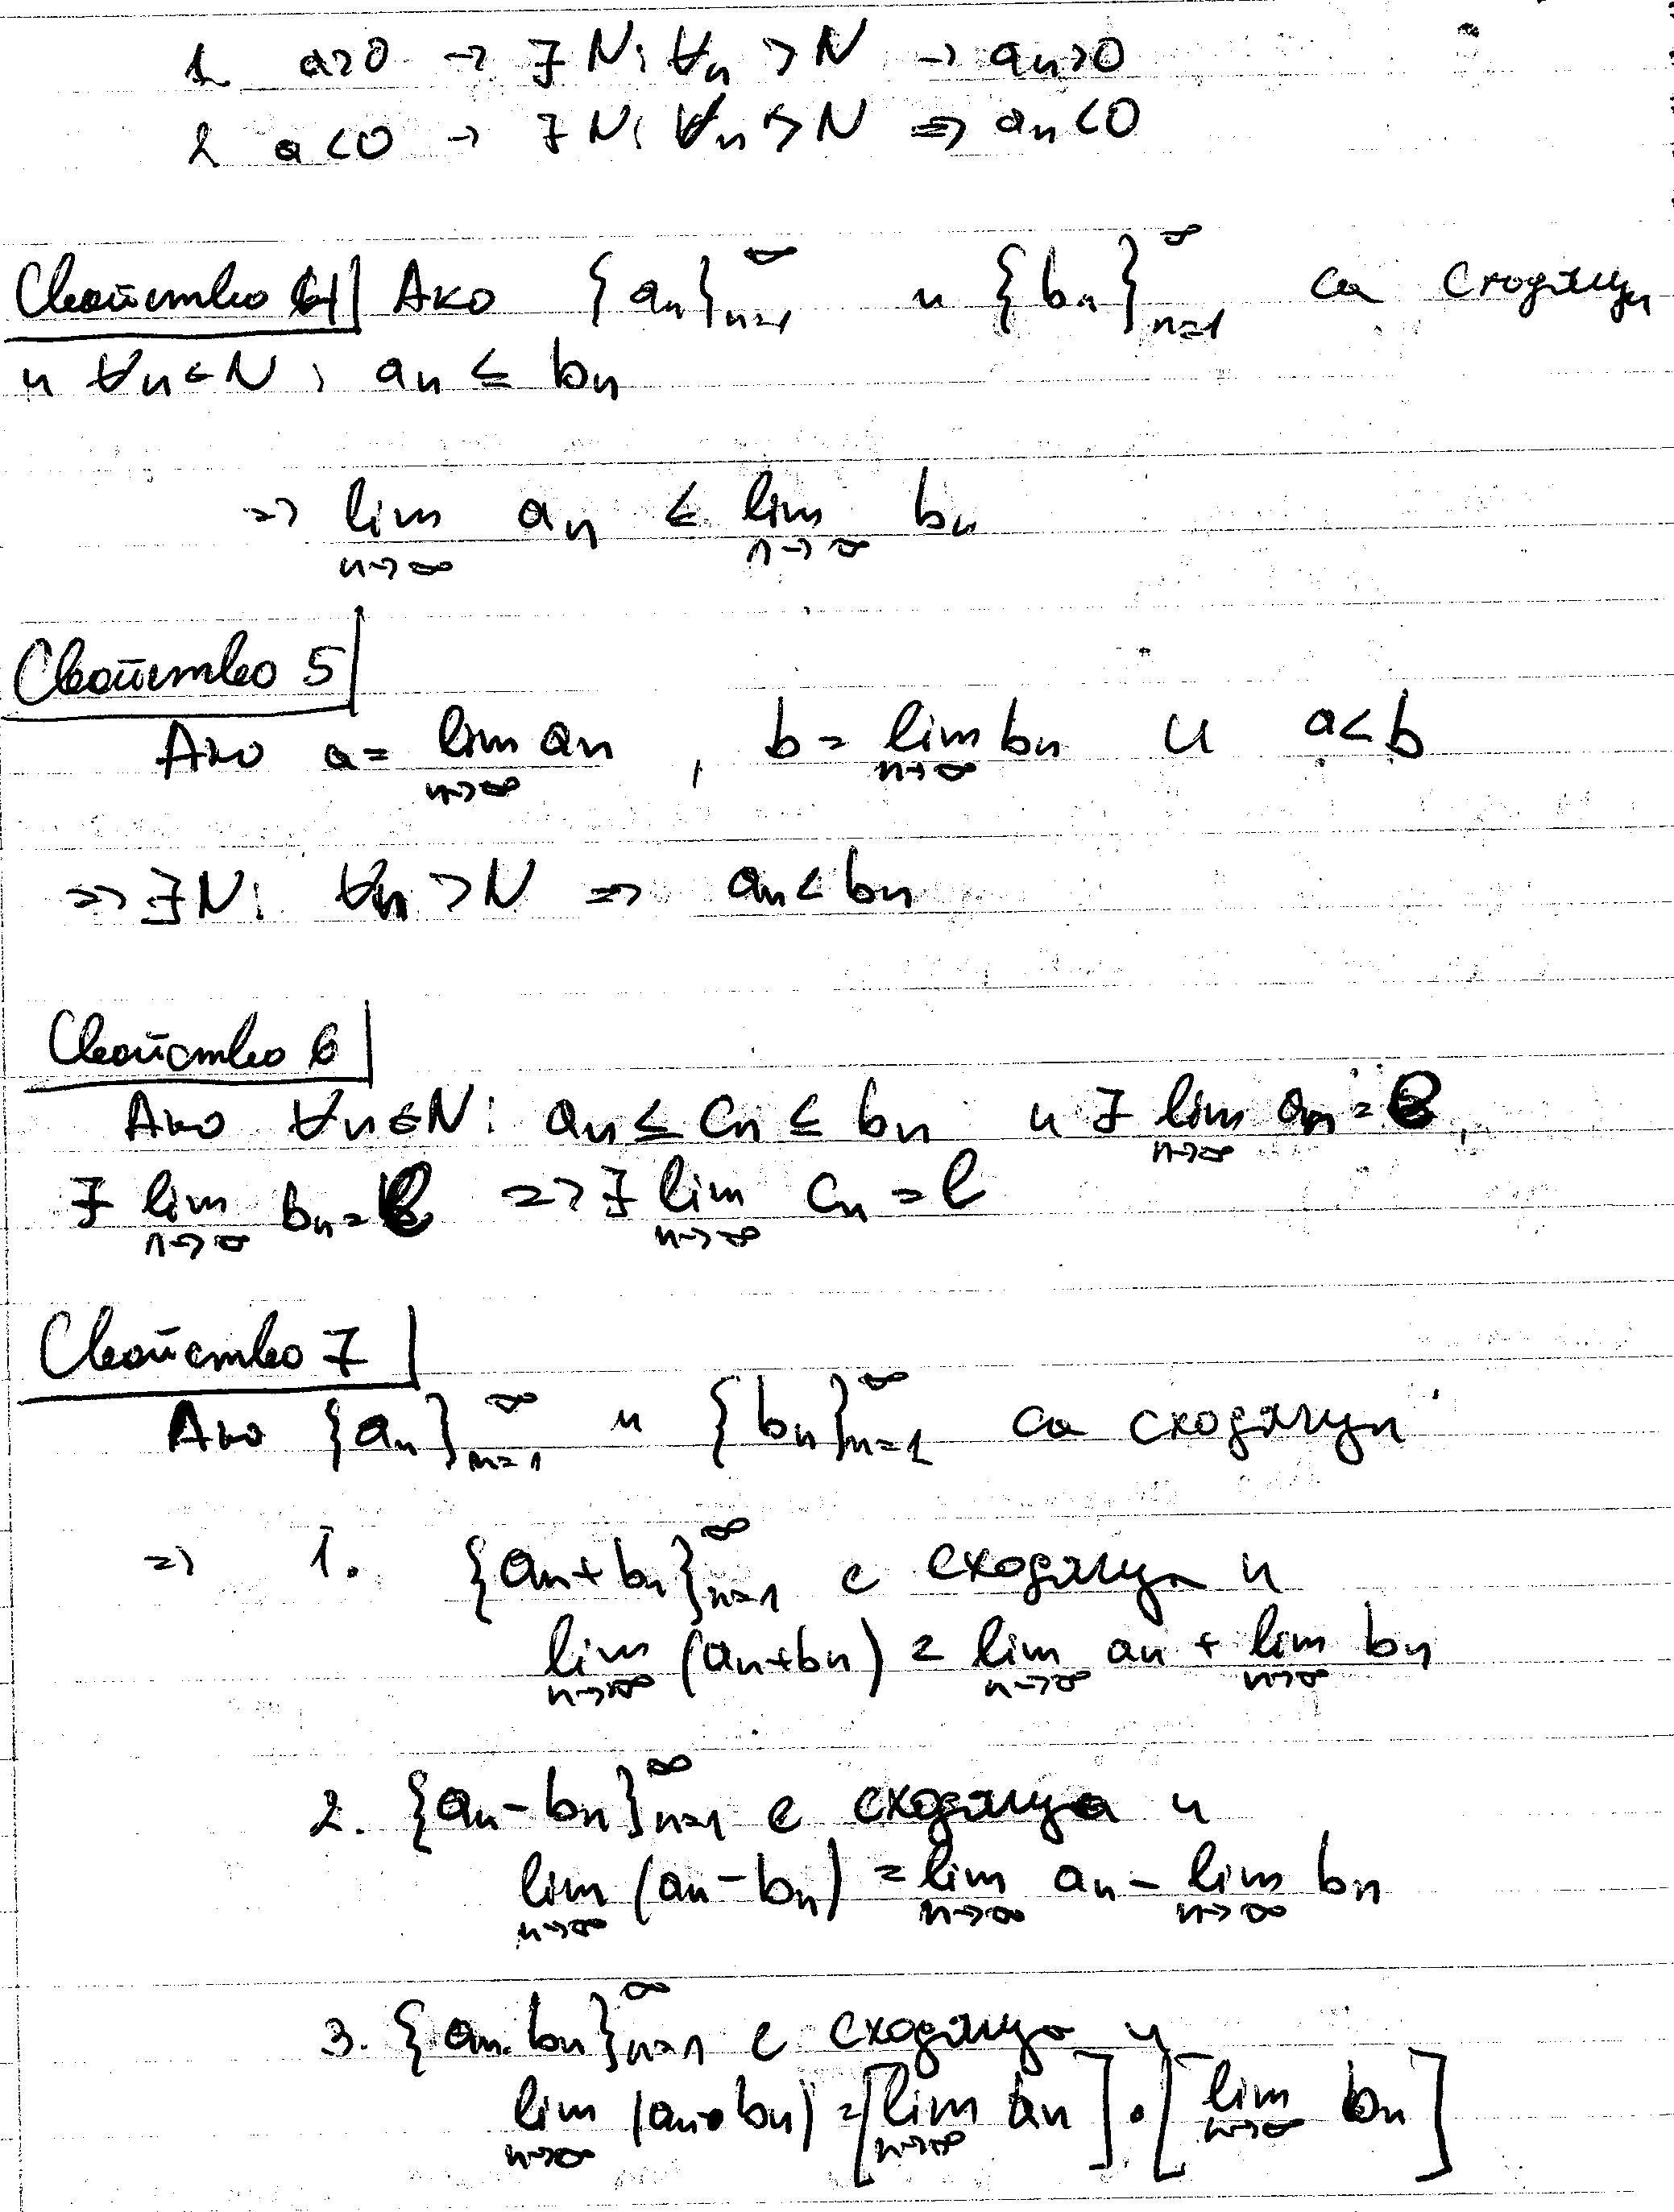 1. a>0 → ∃ N: ∀n >N → an>0
2 a<0 → ∃ N: ∀n >N ⇒ an<0
Свойство 4 Ако {an}∞n=1 и {bn}∞n=1 са сходящи
и ∀n∈N, an ≤ bn
⇒ lim n→∞ an ≤ lim n→∞ bn
Свойство 5
Ако a = lim n→∞ an , b = lim n→∞ bn и a<b
⇒ ∃N: ∀n >N ⇒ an<bn
Свойство 6
Ако ∀n∈N: an ≤ cn ≤ bn и ∃ lim n→∞ an = l,
∃ lim n→∞ bn = l ⇒ ∃ lim n→∞ cn = l
Свойство 7
Ако {an}∞n=1 и {bn}∞n=1 са сходящи
⇒ 1. {an+bn}∞n=1 е сходяща и
lim n→∞ (an+bn) = lim n→∞ an + lim n→∞ bn
2. {an-bn}∞n=1 е сходяща и
lim n→∞ (an-bn) = lim n→∞ an - lim n→∞ bn
3. {an.bn}∞n=1 е сходяща и
lim n→∞ (an.bn) = [lim n→∞ an].[lim n→∞ bn]